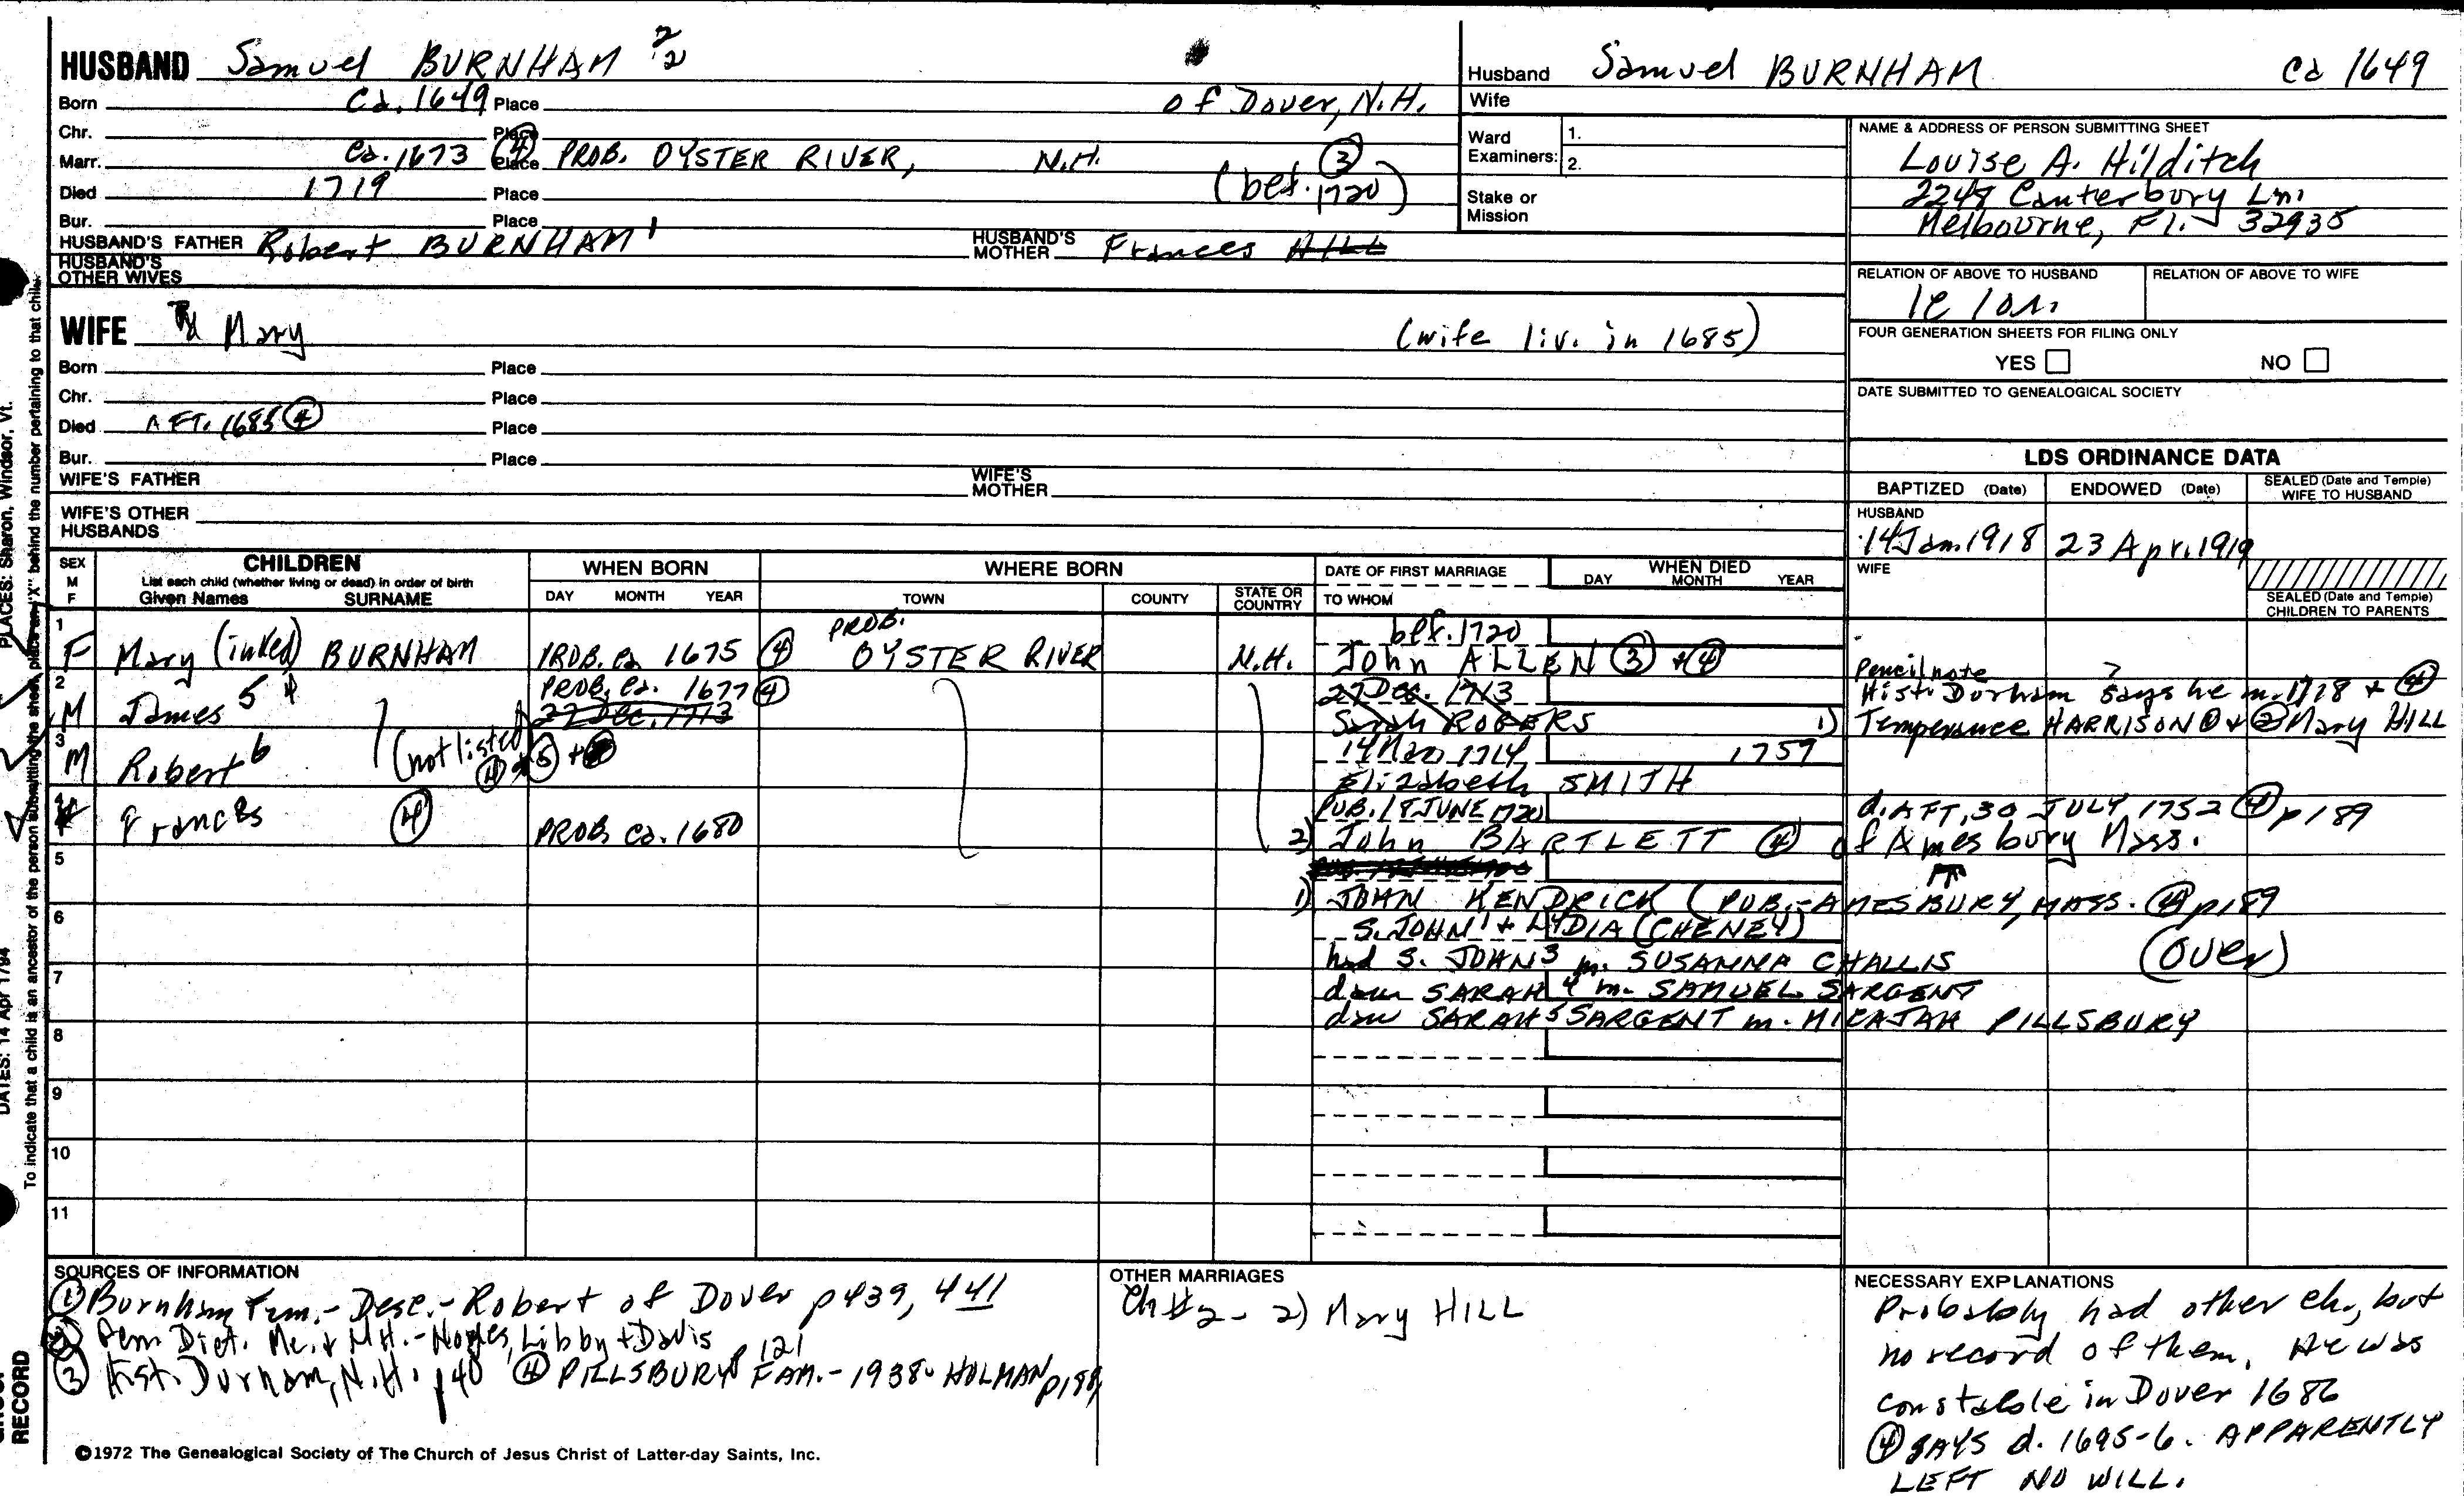 HUSBAND Samuel BURNHAM 2/2
Born Ca. 1649 Place of Dover, N.H.
Chr. Place
Marr. Ca. 1673 ④ Place PROB. OYSTER RIVER, N.H. ③
Died 1719 Place (bef. 1720)
Bur. Place
HUSBAND'S FATHER Robert BURNHAM 1 HUSBAND'S MOTHER Frances HILL
HUSBAND'S OTHER WIVES
WIFE Mary (wife liv. in 1685)
Born Place
Chr. Place
Died AFT. 1685 ④ Place
Bur. Place
WIFE'S FATHER WIFE'S MOTHER
WIFE'S OTHER HUSBANDS
Husband Samuel BURNHAM Ca 1649
Wife
Ward Examiners: 1.
2.
Stake or Mission
NAME & ADDRESS OF PERSON SUBMITTING SHEET
Louise A. Hilditch
2248 Canterbury Ln.
Melbourne, Fl. 32935
RELATION OF ABOVE TO HUSBAND RELATION OF ABOVE TO WIFE
FOUR GENERATION SHEETS FOR FILING ONLY
YES NO
DATE SUBMITTED TO GENEALOGICAL SOCIETY
LDS ORDINANCE DATA
BAPTIZED (Date) ENDOWED (Date) SEALED (Date and Temple) WIFE TO HUSBAND
HUSBAND
14 Jan. 1918 23 Apr. 1919
WIFE
SEALED (Date and Temple) CHILDREN TO PARENTS
SEX M F CHILDREN WHEN BORN WHERE BORN DATE OF FIRST MARRIAGE WHEN DIED
List each child (whether living or dead) in order of birth
Given Names SURNAME DAY MONTH YEAR TOWN COUNTY STATE OR COUNTRY TO WHOM DAY MONTH YEAR
1 F Mary (inked) BURNHAM PROB. Ca 1675 ④ PROB. OYSTER RIVER N.H. bef. 1720
John ALLEN ③ + ④
2 M James 5 4 PROB. Ca. 1677 ④ 27 Dec. 1713
27 Dec. 1713 Sarah ROGERS
Pencil note ?
Hist. Durham says he m. 1718 + ④
1) Temperance HARRISON ① + ② Mary HILL
3 M Robert 6 (not listed ④ + ⑤ + 14 Mar 1714 1759
Elizabeth SMITH
4 F Frances ④ PROB Ca. 1680 PUB. 18 JUNE 1720 d. AFT. 30 JULY 1752 ④ p 189
2) John BARTLETT ④ of Amesbury Mass.
5
6 1) JOHN KENDRICK (PUB.-AMESBURY, MASS. ④ p189
S. JOHN 1 + LYDIA (CHENEY)
had S. JOHN 3 m. SUSANNA CHALLIS (over)
7 dau SARAH 4 m. SAMUEL SARGENT
dau SARAH 5 SARGENT m. MICAJAH PILLSBURY
8
9
10
11
SOURCES OF INFORMATION
① Burnham Fam.- Desc.- Robert of Dover p 439, 441
② Gen Dict. Me. & N.H. - Noyes, Libby + Davis p 121
③ Hist. Durham, N.H. p 40 ④ PILLSBURY FAM. - 1938 - HOLMAN p188,
OTHER MARRIAGES
Ch #2 - 2) Mary HILL
NECESSARY EXPLANATIONS
Probably had other ch., but
no record of them. He was
constable in Dover 1686
④ SAYS d. 1695-6. APPARENTLY
LEFT NO WILL.
©1972 The Genealogical Society of The Church of Jesus Christ of Latter-day Saints, Inc.
PLACES: Sharon, Windsor, Vt.
DATES: 14 Apr 1794
To indicate that a child is an ancestor of the person submitting the sheet, place an "X" behind the number pertaining to that child.
RECORD